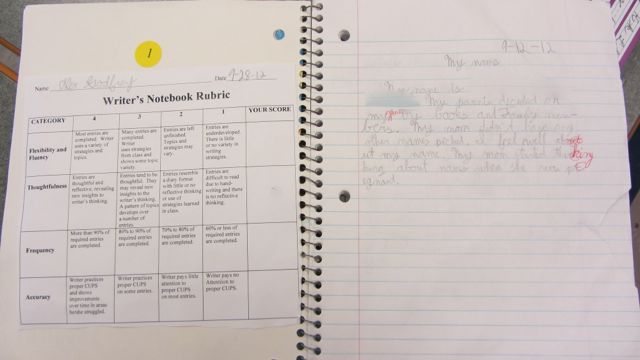 1
Name
Date 9-28-12
Writer's Notebook Rubric
CATEGORY 4 3 2 1 YOUR SCORE
Flexibility and Fluency
Most entries are completed. Writer uses a variety of strategies and topics.
Many entries are completed. Writer uses strategies from class and shows some topic variety.
Entries are left unfinished. Topics and strategies may vary.
Entries are underdeveloped. There is little or no variety in writing strategies.
Thoughtfulness
Entries are thoughtful and reflective, revealing new insights to writer's thinking.
Entries tend to be thoughtful. They may reveal new insights to the writer's thinking. A pattern of topics develops over a number of entries.
Entries resemble a diary format with little or no reflective thinking or use of strategies learned in class.
Entries are difficult to read due to hand-writing and there is no reflective thinking.
Frequency
More than 90% of required entries are completed.
80% to 90% of required entries are completed.
70% to 80% of required entries are completed.
60% or less of required entries are completed.
Accuracy
Writer practices proper CUPS and shows improvements over time in areas he/she struggled.
Writer practices proper CUPS on some entries.
Writer pays little attention to proper CUPS on most entries.
Writer pays no Attention to proper CUPS.
9-12-12
My name
My name is
My parents decided on
my books and
My mom didn't
other names picked. I feel
my name. My mom
about names when she